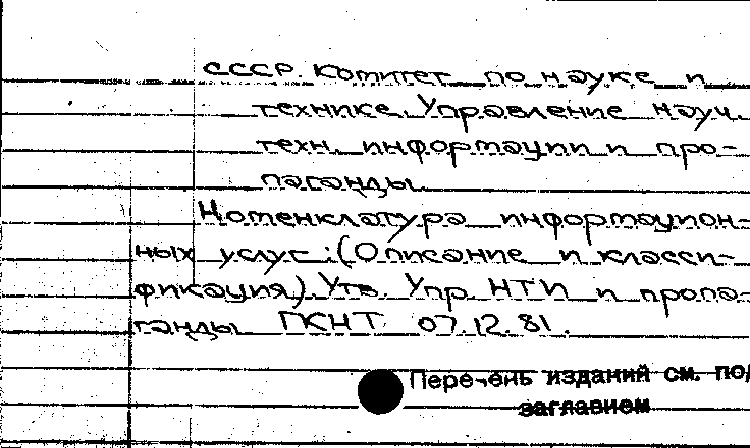 СССР. Комитет по науке и
технике. Управление науч.
техн. информации и про-
паганды.
Номенклатура информацион-
ных услуг: (Описание и класси-
фикация). Утв. Упр. НТИ и пропа-
ганды ГКНТ 07.12.81.
Перечень изданий см. под
заглавием